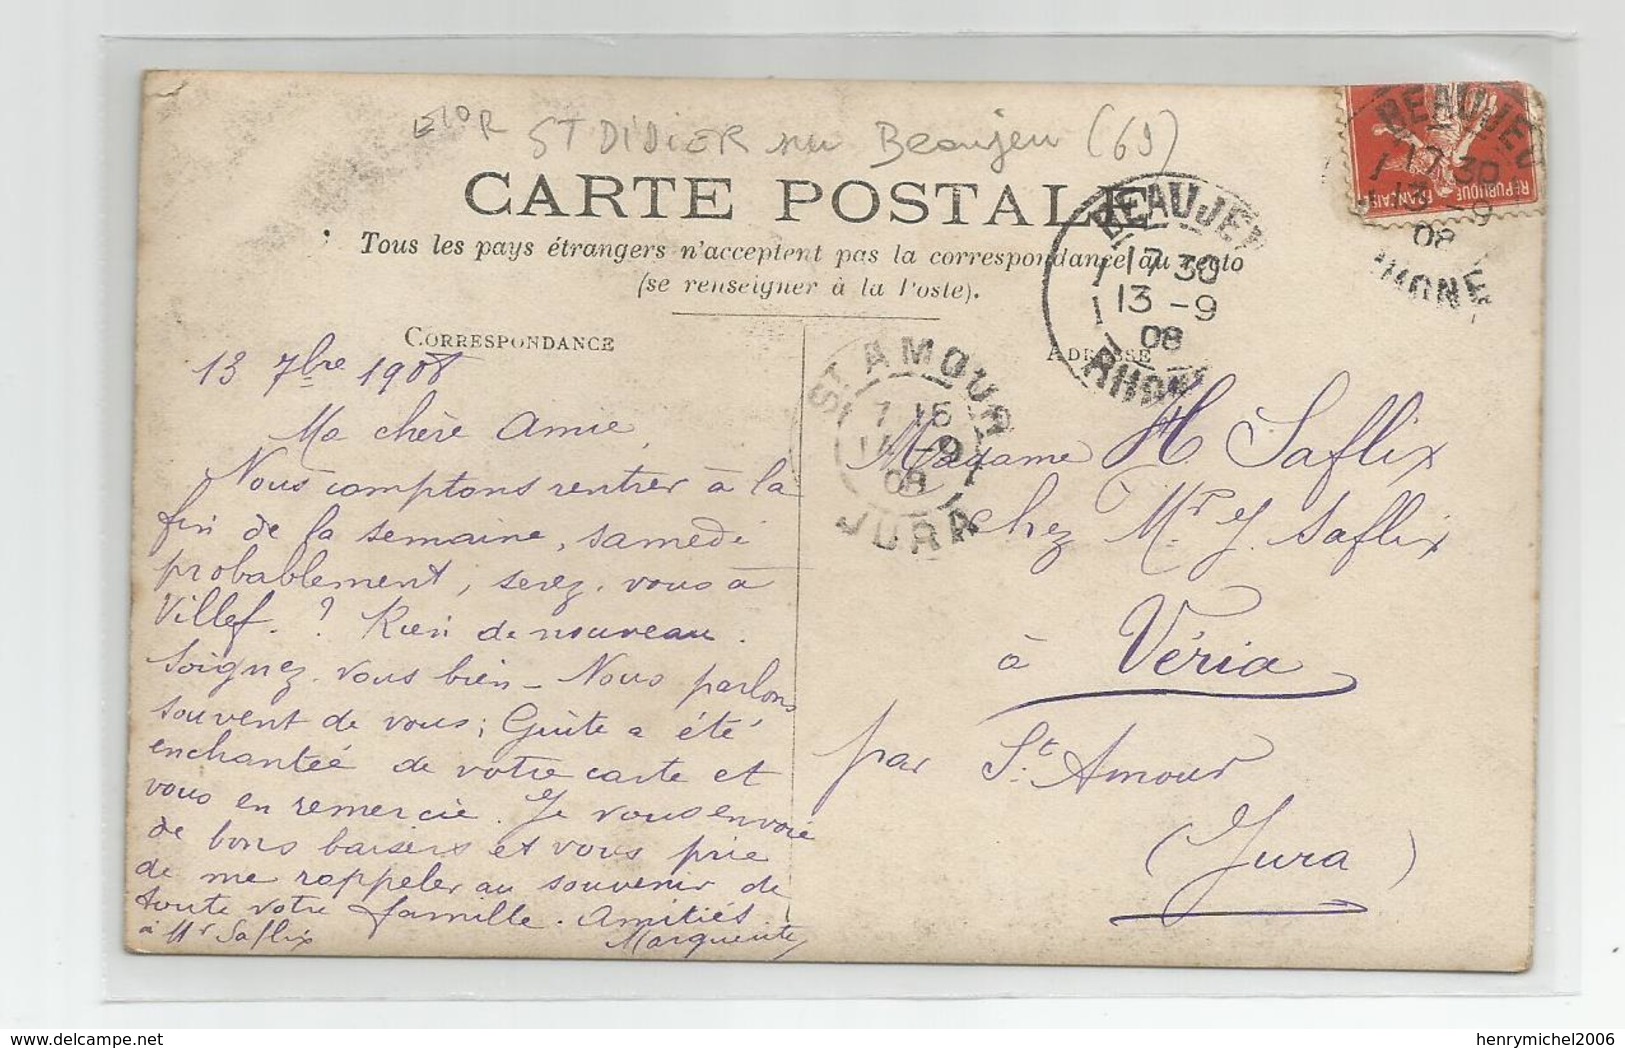 ST DIDIER sur Beaujeu (69)
CARTE POSTALE
Tous les pays étrangers n'acceptent pas la correspondance au recto
(se renseigner à la Poste).
CORRESPONDANCE
ADRESSE
BEAUJEU
17 30
13 - 9
08
RHONE
BEAUJEU
17 30
13 - 9
08
RHONE
REPUBLIQUE FRANÇAISE
ST AMOUR
7 15
14 - 9
08
JURA
13 7bre 1908
Ma chère Amie,
Nous comptons rentrer à la
fin de la semaine, samedi
probablement, serez-vous à
Villef. ? Rien de nouveau.
Soignez-vous bien - Nous parlons
souvent de vous ; Guite a été
enchantée de votre carte et
vous en remercie. Je vous envoie
de bons baisers et vous prie
de me rappeler au souvenir de
toute votre famille. Amitiés
à Mr Saflix
Marguerite
Madame H. Saflix
chez Mr J. Saflix
à Véria
par St. Amour
(Jura)
delcampe.net
henrymichel2006